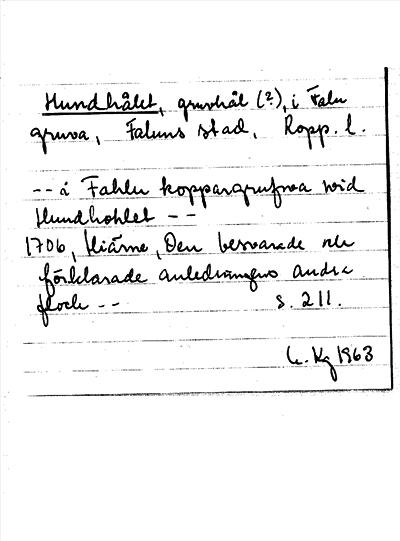 Hundhålet, gruvhål (?), i Falu
gruva, Faluns stad, Kopp. l.
-- i Fahlu koppargrufwa wid
Hundhohlet --
1706, Hiärne, Den beswarade och
förklarade anledningens andra
flock -- s. 211.
Kg 1963